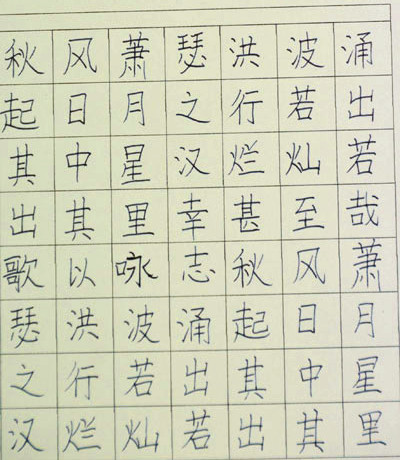 秋风萧瑟洪波涌
起日月之行若出
其中星汉烂灿若
出其里幸甚至哉
歌以咏志秋风萧
瑟洪波涌起日月
之行若出其中星
汉烂灿若出其里